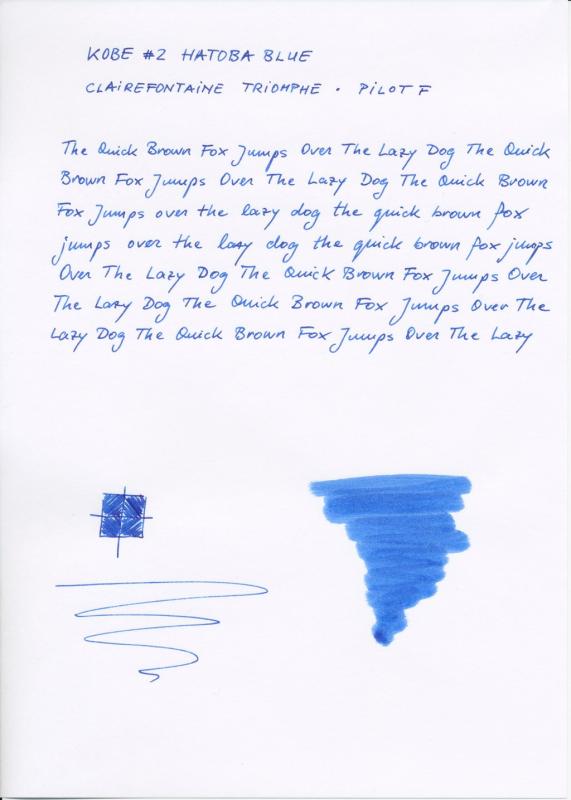 KOBE #2 HATOBA BLUE
CLAIREFONTAINE TRIOMPHE · PILOT F
The Quick Brown Fox Jumps Over The Lazy Dog The Quick
Brown Fox Jumps Over The Lazy Dog The Quick Brown
Fox Jumps over the lazy dog the quick brown fox
jumps over the lazy dog the quick brown fox jumps
Over The Lazy Dog The Quick Brown Fox Jumps Over
The Lazy Dog The Quick Brown Fox Jumps Over The
Lazy Dog The Quick Brown Fox Jumps Over The Lazy